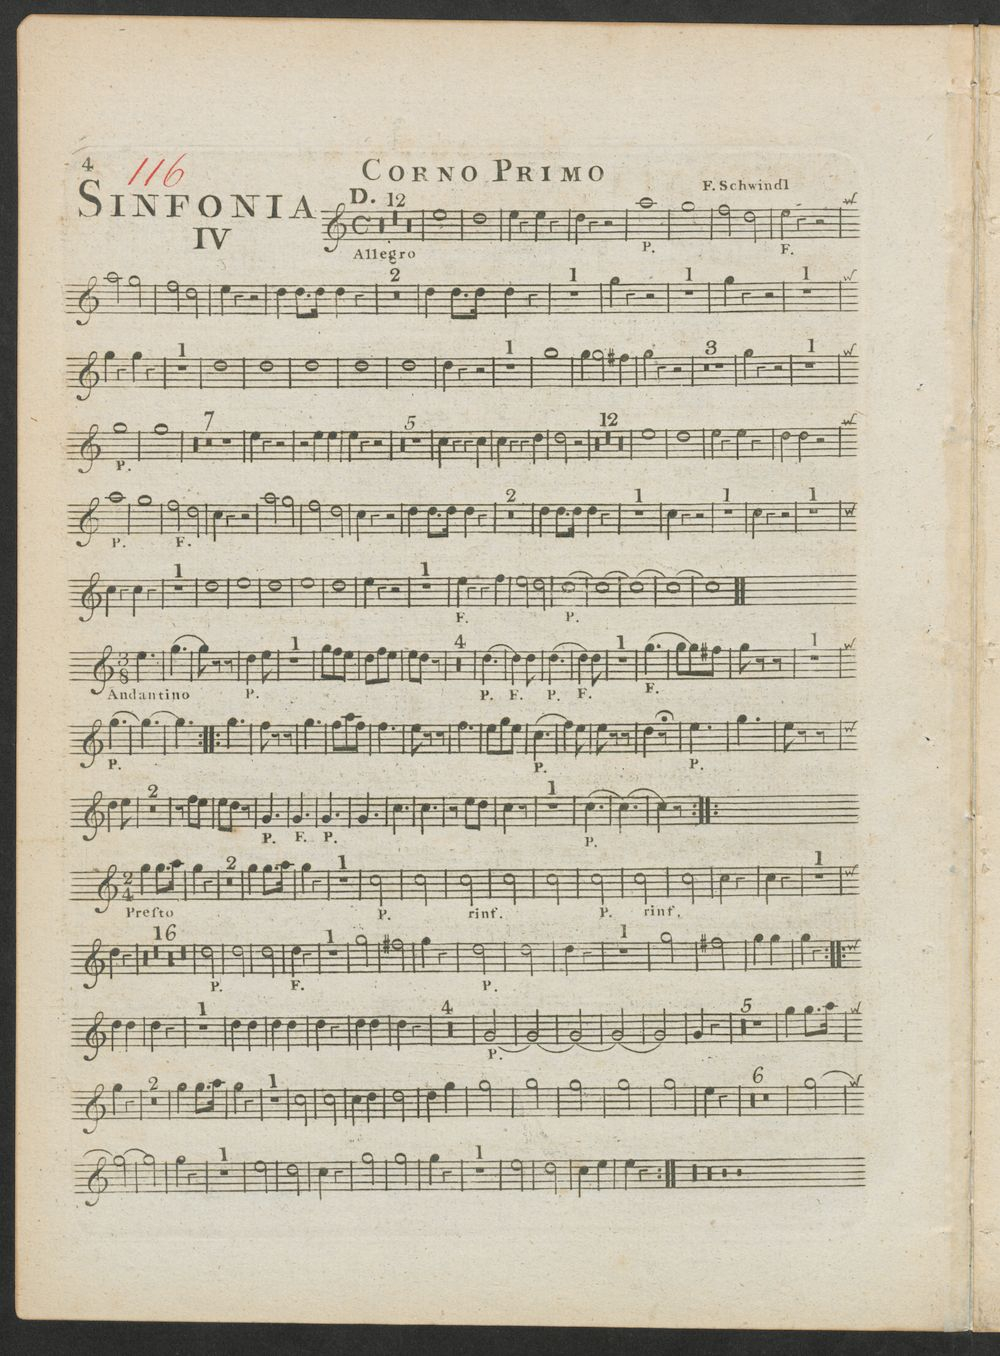 4
116
CORNO PRIMO
SINFONIA
IV
D.
F. Schwindl
12
Allegro
P.
F.
2
1
1
1
1
1
3
1
7
5
12
P.
2
1
1
1
P.
F.
1
1
F.
P.
1
4
1
1
Andantino
P.
P.
F.
P.
F.
F.
P.
P.
P.
2
1
P.
F.
P.
P.
2
1
1
Presto
P.
rinf.
P.
rinf.
16
1
1
P.
F.
P.
1
4
5
P.
2
1
6
1
1